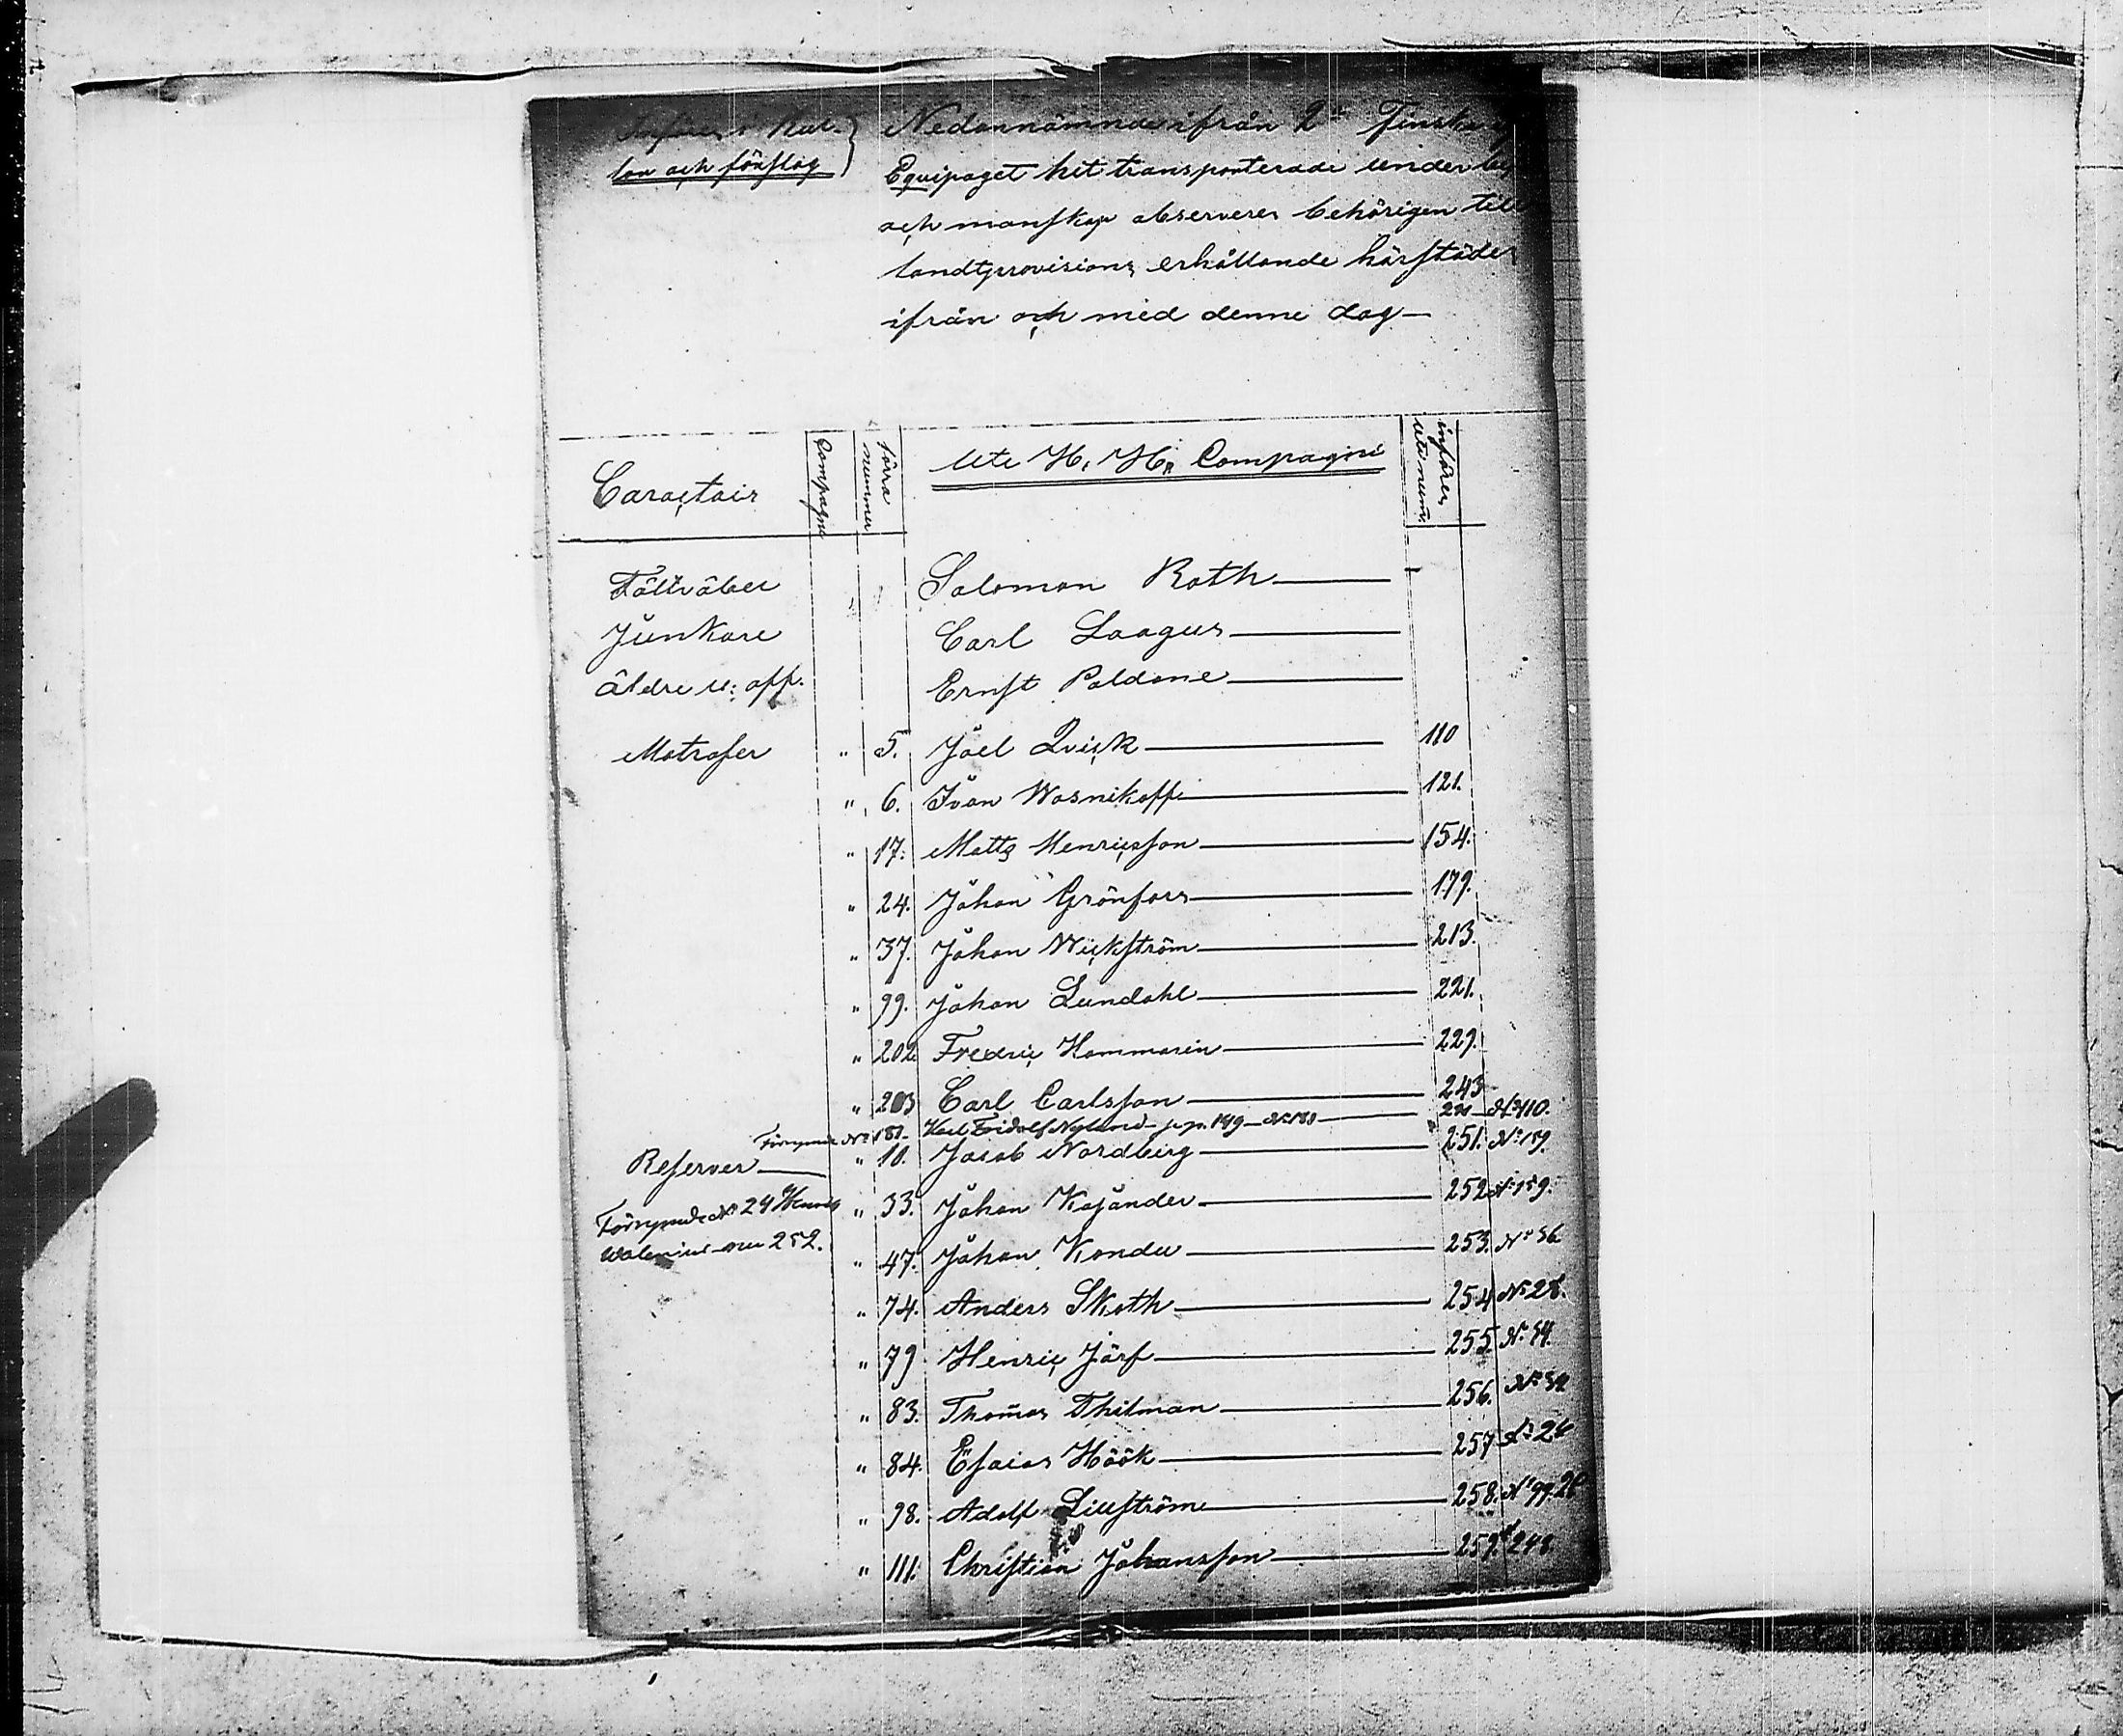 Införes i Rul-
lor och förslag
Nedannämnde ifrån 2a Finska
Equipaget hit transporterade under
och manskap observeres behörigen till
landtprovisions erhållande härstädes
ifrån och med denne dag —
Caractair
Compagni
förra nummer
Ute H: Hr Compagnie
införes ut num:
Fältväbel Salomon Roth —
Junkare Carl Laagus —
äldre u: off. Ernst Paldane —
Matroser " 5. Joel Qvick — 110
" 6. Ivan Wasnikoff — 121.
" 17. Matts Henricsson — 154.
" 24. Johan Grönfors — 179.
" 37. Johan Wickström — 213.
" 99. Johan Lundahl — 221.
" 202 Fredric Hammarin — 229.
" 203 Carl Carlsson — 243
No 181 — Karl Fridolf Nylund — 149 — No 180 — No 110.
Reserver — " 10. Jacob Nordberg — 251. No 159.
" 33. Johan Kajander — 252 No 159.
No 24
252.
" 47. Johan Konda — 253. No 36
" 74. Anders Skoth — 254 No 28.
" 79 Henric Järf — 255. No 54.
" 83. Thomas Thilman — 256. No 54
" 84. Esaias Höök — 257 No 24
" 98. Adolf Lillström — 258. No 99. 20
" 111. Christian Johansson — 259. 248.